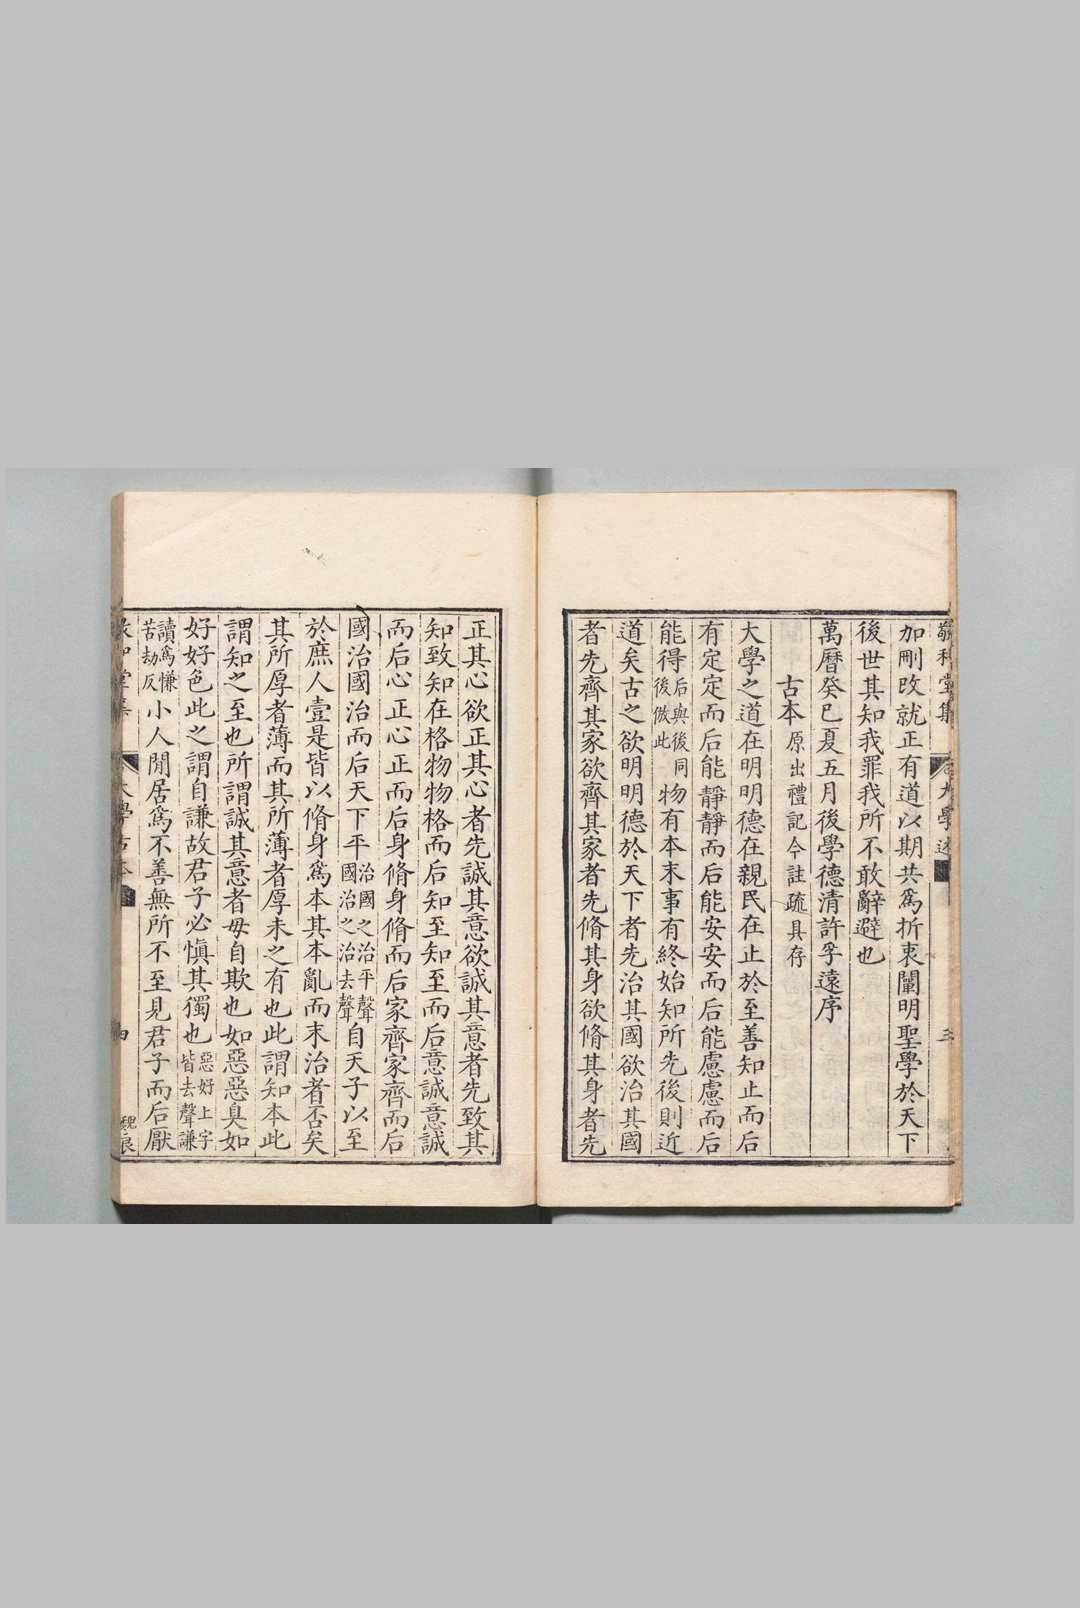 敬和堂集 大學述 三
加刪改就正有道以期共爲折衷闡明聖學於天下
後世其知我罪我所不敢辭避也
萬曆癸巳夏五月後學德清許孚遠序
古本原出禮記今註疏具存
大學之道在明明德在親民在止於至善知止而后
有定定而后能靜靜而后能安安而后能慮慮而后
能得后與後同後倣此物有本末事有終始知所先後則近
道矣古之欲明明德於天下者先治其國欲治其國
者先齊其家欲齊其家者先脩其身欲脩其身者先
正其心欲正其心者先誠其意欲誠其意者先致其
知致知在格物物格而后知至知至而后意誠意誠
而后心正心正而后身脩身脩而后家齊家齊而后
國治國治而后天下平治國之治平聲國治之治去聲自天子以至
於庶人壹是皆以脩身爲本其本亂而末治者否矣
其所厚者薄而其所薄者厚未之有也此謂知本此
謂知之至也所謂誠其意者毋自欺也如惡惡臭如
好好色此之謂自謙故君子必愼其獨也惡好上字皆去聲謙
讀爲慊苦劫反小人閒居爲不善無所不至見君子而后厭
大學古本 四